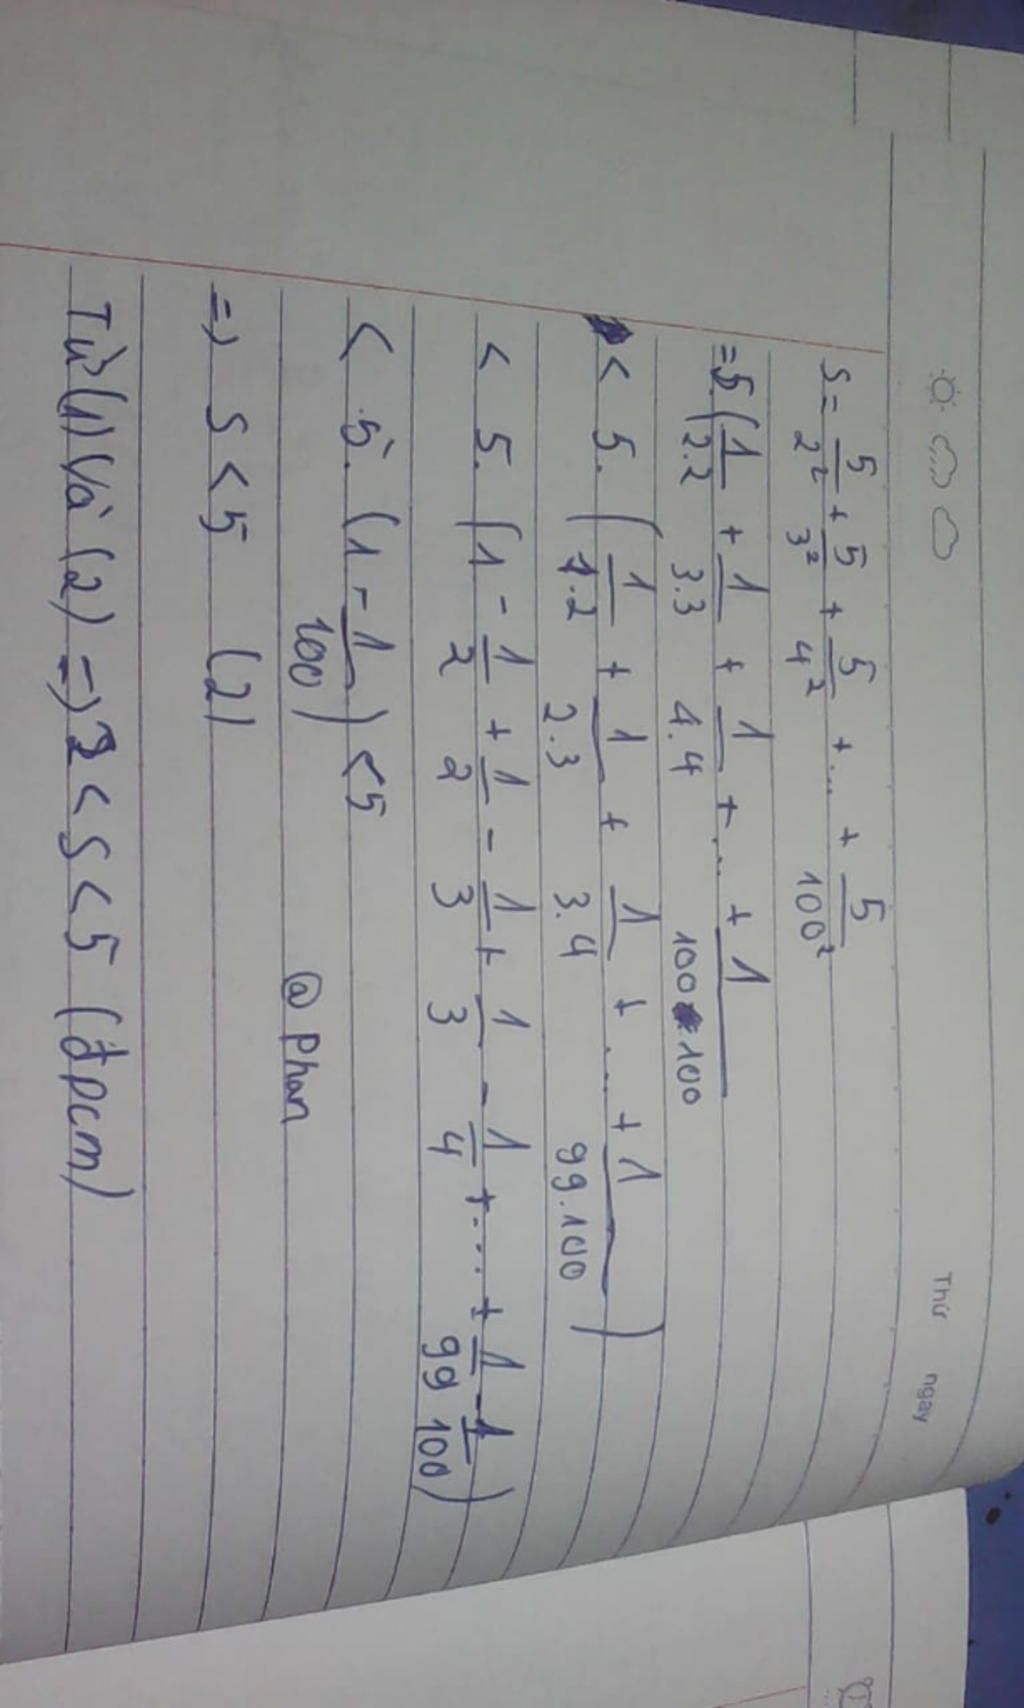 Thứ ngày
S = 5/2² + 5/3² + 5/4² + ... + 5/100²
= 5.(1/2.2 + 1/3.3 + 1/4.4 + ... + 1/100.100
< 5.(1/1.2 + 1/2.3 + 1/3.4 + ... + 1/99.100)
< 5.(1 - 1/2 + 1/2 - 1/3 + 1/3 - 1/4 + ... + 1/99 - 1/100)
< 5.(1 - 1/100) < 5
@ Phan
=> S < 5 (2)
Từ (1) Và (2) => 2 < S < 5 (đpcm)